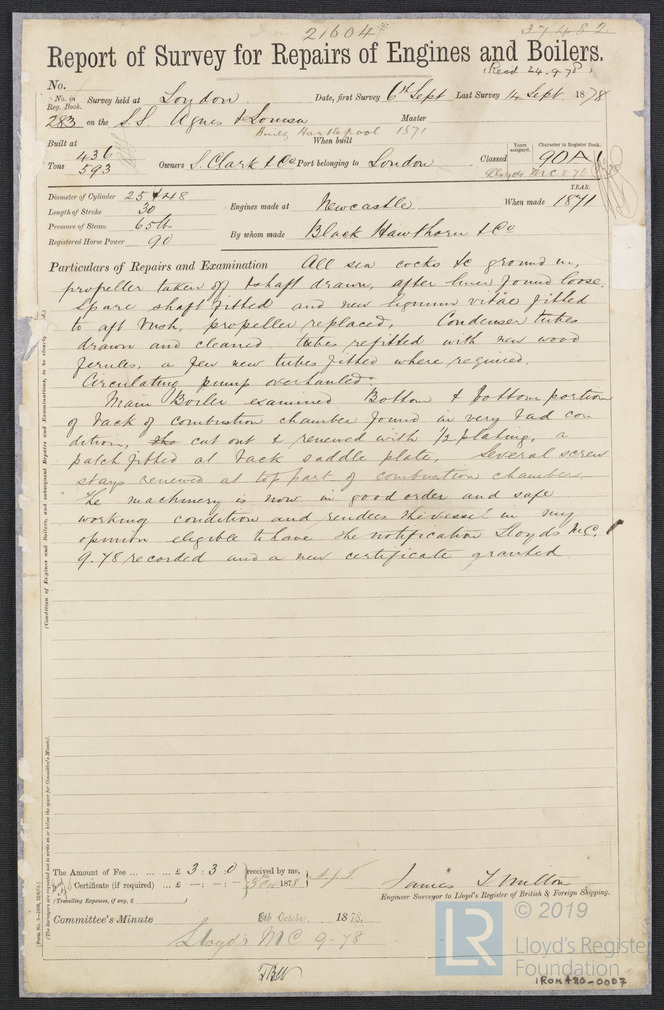 21604
37482
Report of Survey for Repairs of Engines and Boilers.
(Recd 24.9.78)
No.
No. in Reg. Book. Survey held at London Date, first Survey 6th Sept Last Survey 14 Sept 1878
283 on the S.S. Agnes & Louisa Master
Built Hartlepool 1871
Built at When built
Tons 436 593 Owners S. Clark & Co Port belonging to London Classed
Years assigned. Character in Register Book.
90 A 1
Lloyds M.C. 8.76
YEAR.
Diameter of Cylinder 25 & 48
Length of Stroke 30
Pressure of Steam 65 lb
Registered Horse Power 90
Engines made at Newcastle When made 1871
By whom made Black Hawthorn & Co
Particulars of Repairs and Examination All sea cocks &c ground in,
propeller taken of & shaft drawn, after liner found loose.
Spare shaft fitted and new lignum vitae fitted
to aft bush, propeller replaced, Condenser tubes
drawn and cleaned tubes refitted with new wood
ferules, a few new tubes fitted where required.
Circulating pump overhauled.
Main Boiler examined Bottom & bottom portion
of back of combustion chamber found in very bad con-
dition, cut out & renewed with 1/2 plating, a
patch fitted at back saddle plate. Several screw
stays renewed at top part of combustion chambers.
The machinery is now in good order and safe
working condition and renders the vessel in my
opinion eligible to have the notification Lloyds M.C.
9.78 recorded and a new certificate granted
(Condition of Engines and Boilers, and subsequent Repairs and Examinations, to be clearly
(The Surveyors are requested not to write on or below the space for Committee's Minute).
The Amount of Fee ... ... ... £ 3:3:0 received by me,
Certificate (if required) ... £ -:-:- 1878
(Travelling Expenses, if any, £ )
James T Milton
Engineer Surveyor to Lloyd's Register of British & Foreign Shipping.
Committee's Minute 8th October, 1878.
Lloyd's MC 9-78
© 2019
LR
Lloyd's Register
Foundation
IRON480-0007